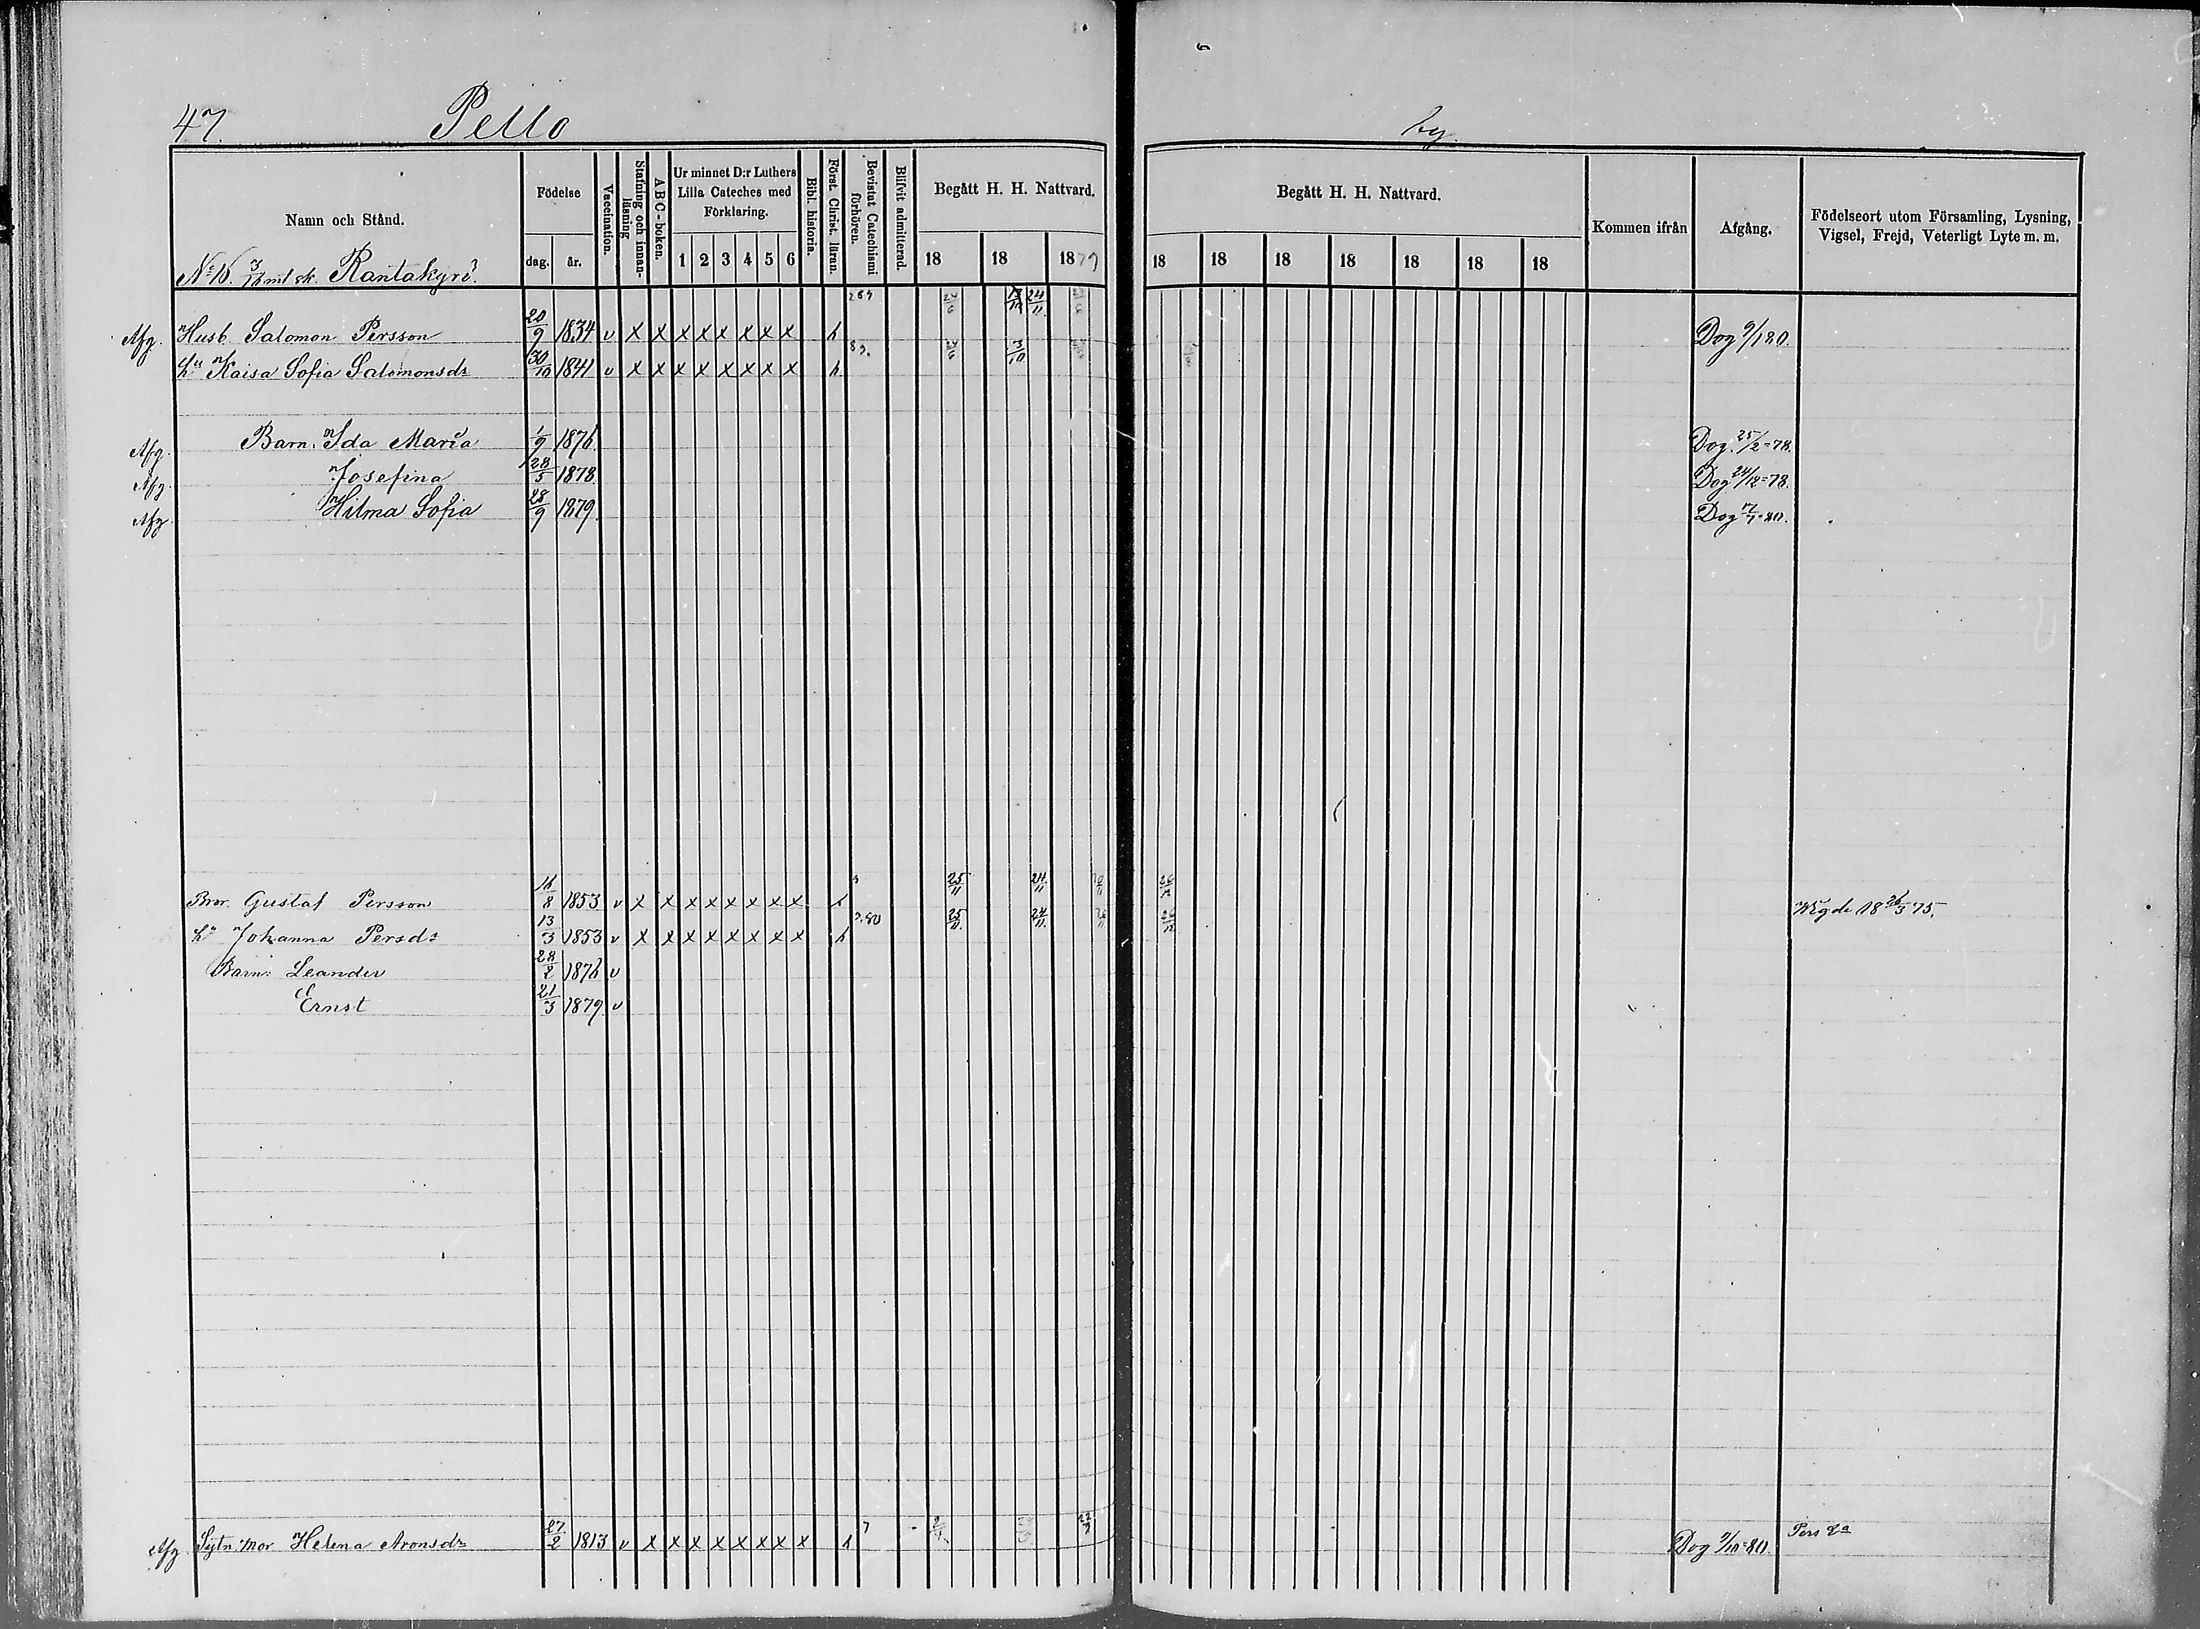 47. Pello by.
Namn och Stånd. Födelse dag. år. Vaccination. Stafning och innanläsning A B C-boken. Ur minnet D:r Luthers Lilla Cateches med Förklaring. 1 2 3 4 5 6 Bibl. historia. Först. Christ. läran. Bevistat Catechismi förhören. Blifvit admitterad. Begått H. H. Nattvard. 18 18 1879
Begått H. H. Nattvard. 18 18 18 18 18 18 18 Kommen ifrån Afgång. Födelseort utom Församling, Lysning, Vigsel, Frejd, Veterligt Lyte m. m.
No 16. 3/16 mtl sk. Rantakyrö.
Afg. Husb Salomon Persson 20/9 1834 v x x x x x x x x h 13/10 24/11 Dog 9/1 80.
Hu Kaisa Sofia Salomonsdr 30/10 1841 v x x x x x x x x h 3/10
Afg. Barn: Ida Maria 1/9 1876 Dog. 25/2=78.
Afg. Josefina 28/5 1878 Dog 24/12=78.
Afg Hilma Sofia 28/9 1879. Dog 17/7=80.
Bror. Gustaf Persson 16/8 1853 v x x x x x x x x h 25/11 24/11 26/12 Wigde 18 26/3 75.
Hu Johanna Persdr 13/3 1853 v x x x x x x x x h 80 25/11 24/11 26/12
Barn: Leander 28/2 1876 v
Ernst 21/3 1879. v
Afg. Sytn. Mor Helena Aronsdr 27/2 1813 v x x x x x x x x h 7 22/3 Dog 9/10=80. Pers Ea